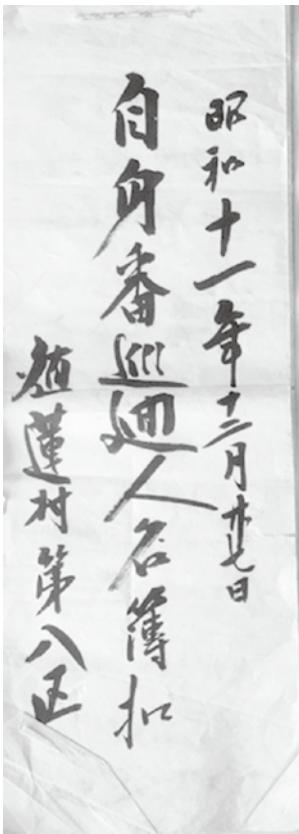 昭和十一年十二月廿七日
自身番巡廻人名簿扣
殖蓮村第八区